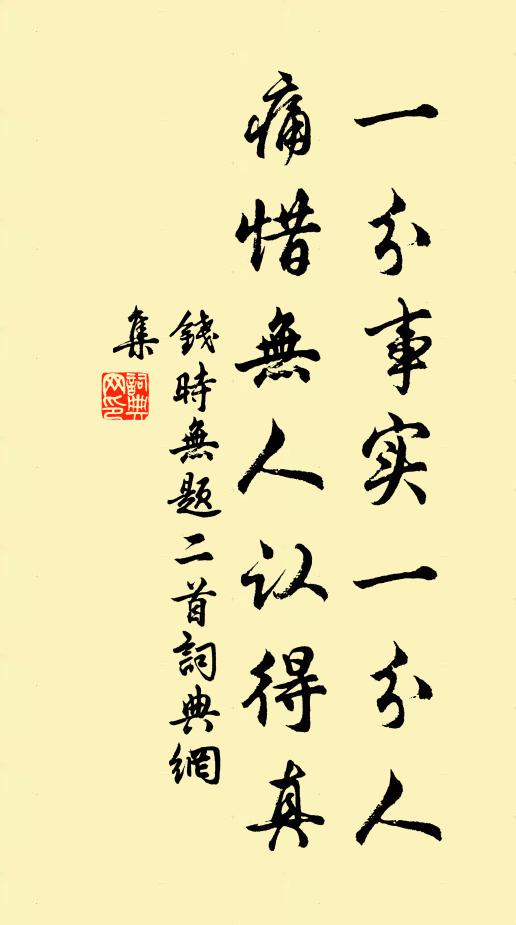 一分事实一分人
痛惜無人认得真
錢時無题二首詞典網
集
詞典
网印